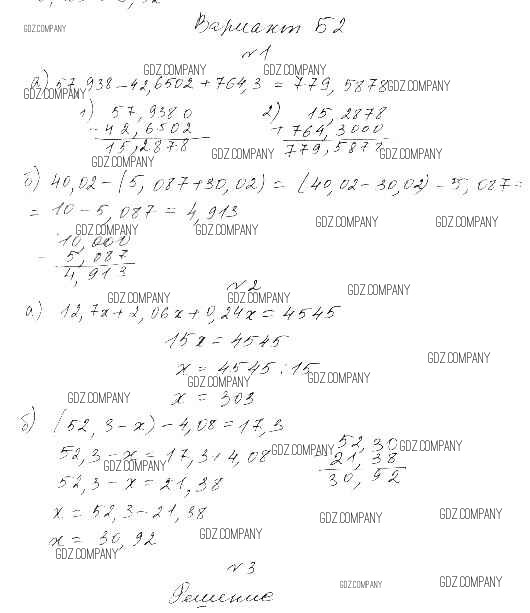 GDZ.COMPANY
Вариант Б2
№1
GDZ.COMPANY GDZ.COMPANY
а) 57,938 - 42,6502 + 764,3 = 779,5878 GDZ.COMPANY
GDZ.COMPANY
1) 57,9380 2) 15,2878
- 42,6502 + 764,3000
15,2878 779,5878
GDZ.COMPANY GDZ.COMPANY GDZ.COMPANY
б) 40,02 - (5,087 + 30,02) = (40,02 - 30,02) - 5,087 =
= 10 - 5,087 = 4,913
GDZ.COMPANY GDZ.COMPANY GDZ.COMPANY GDZ.COMPANY
10,000
- 5,087
4,913
№2
GDZ.COMPANY GDZ.COMPANY GDZ.COMPANY
а) 12,7x + 2,06x + 0,24x = 4545
15x = 4545
GDZ.COMPANY
x = 4545 : 15
GDZ.COMPANY GDZ.COMPANY
x = 303
GDZ.COMPANY
б) (52,3 - x) - 4,08 = 17,3
52,3 - x = 17,3 + 4,08 GDZ.COMPANY - 52,30 GDZ.COMPANY
GDZ.COMPANY 21,38
52,3 - x = 21,38 30,92
x = 52,3 - 21,38
GDZ.COMPANY GDZ.COMPANY
x = 30,92 GDZ.COMPANY
GDZ.COMPANY
№3
GDZ.COMPANY GDZ.COMPANY
Решение